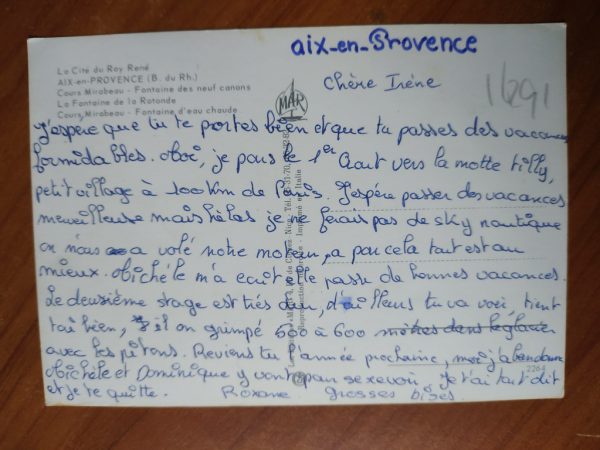 aix-en-Provence
La Cité du Roy René
AIX-en-PROVENCE (B. du Rh.)
Cours Mirabeau - Fontaine des neuf canons
La Fontaine de la Rotonde
Cours Mirabeau - Fontaine d'eau chaude
MAR
1691
Chère Irène
J'espère que tu te portes bien et que tu passes des vacances
formidables. Moi, je pars le 1er Aout vers la motte tilly,
petit village à 100 km de Paris. J'espère passer des vacances
merveilleuse mais hélas je ne ferais pas de sky nautique
on nous a volé notre moteur, a par cela tout est au
mieux. Michèle m'a ecrit elle passe de bonnes vacances.
Le deuxième stage est très dur, d'ailleurs tu va voir, tient
toi bien, il on grimpé 600 à 600 mètres dans le glacier
avec les pitons. Reviens tu l'année prochaine, moi j'abandonne
Michèle et Dominique y vont pour se revoir. Je t'ai tout dit
et je te quitte. Roxane grosses bises
2264